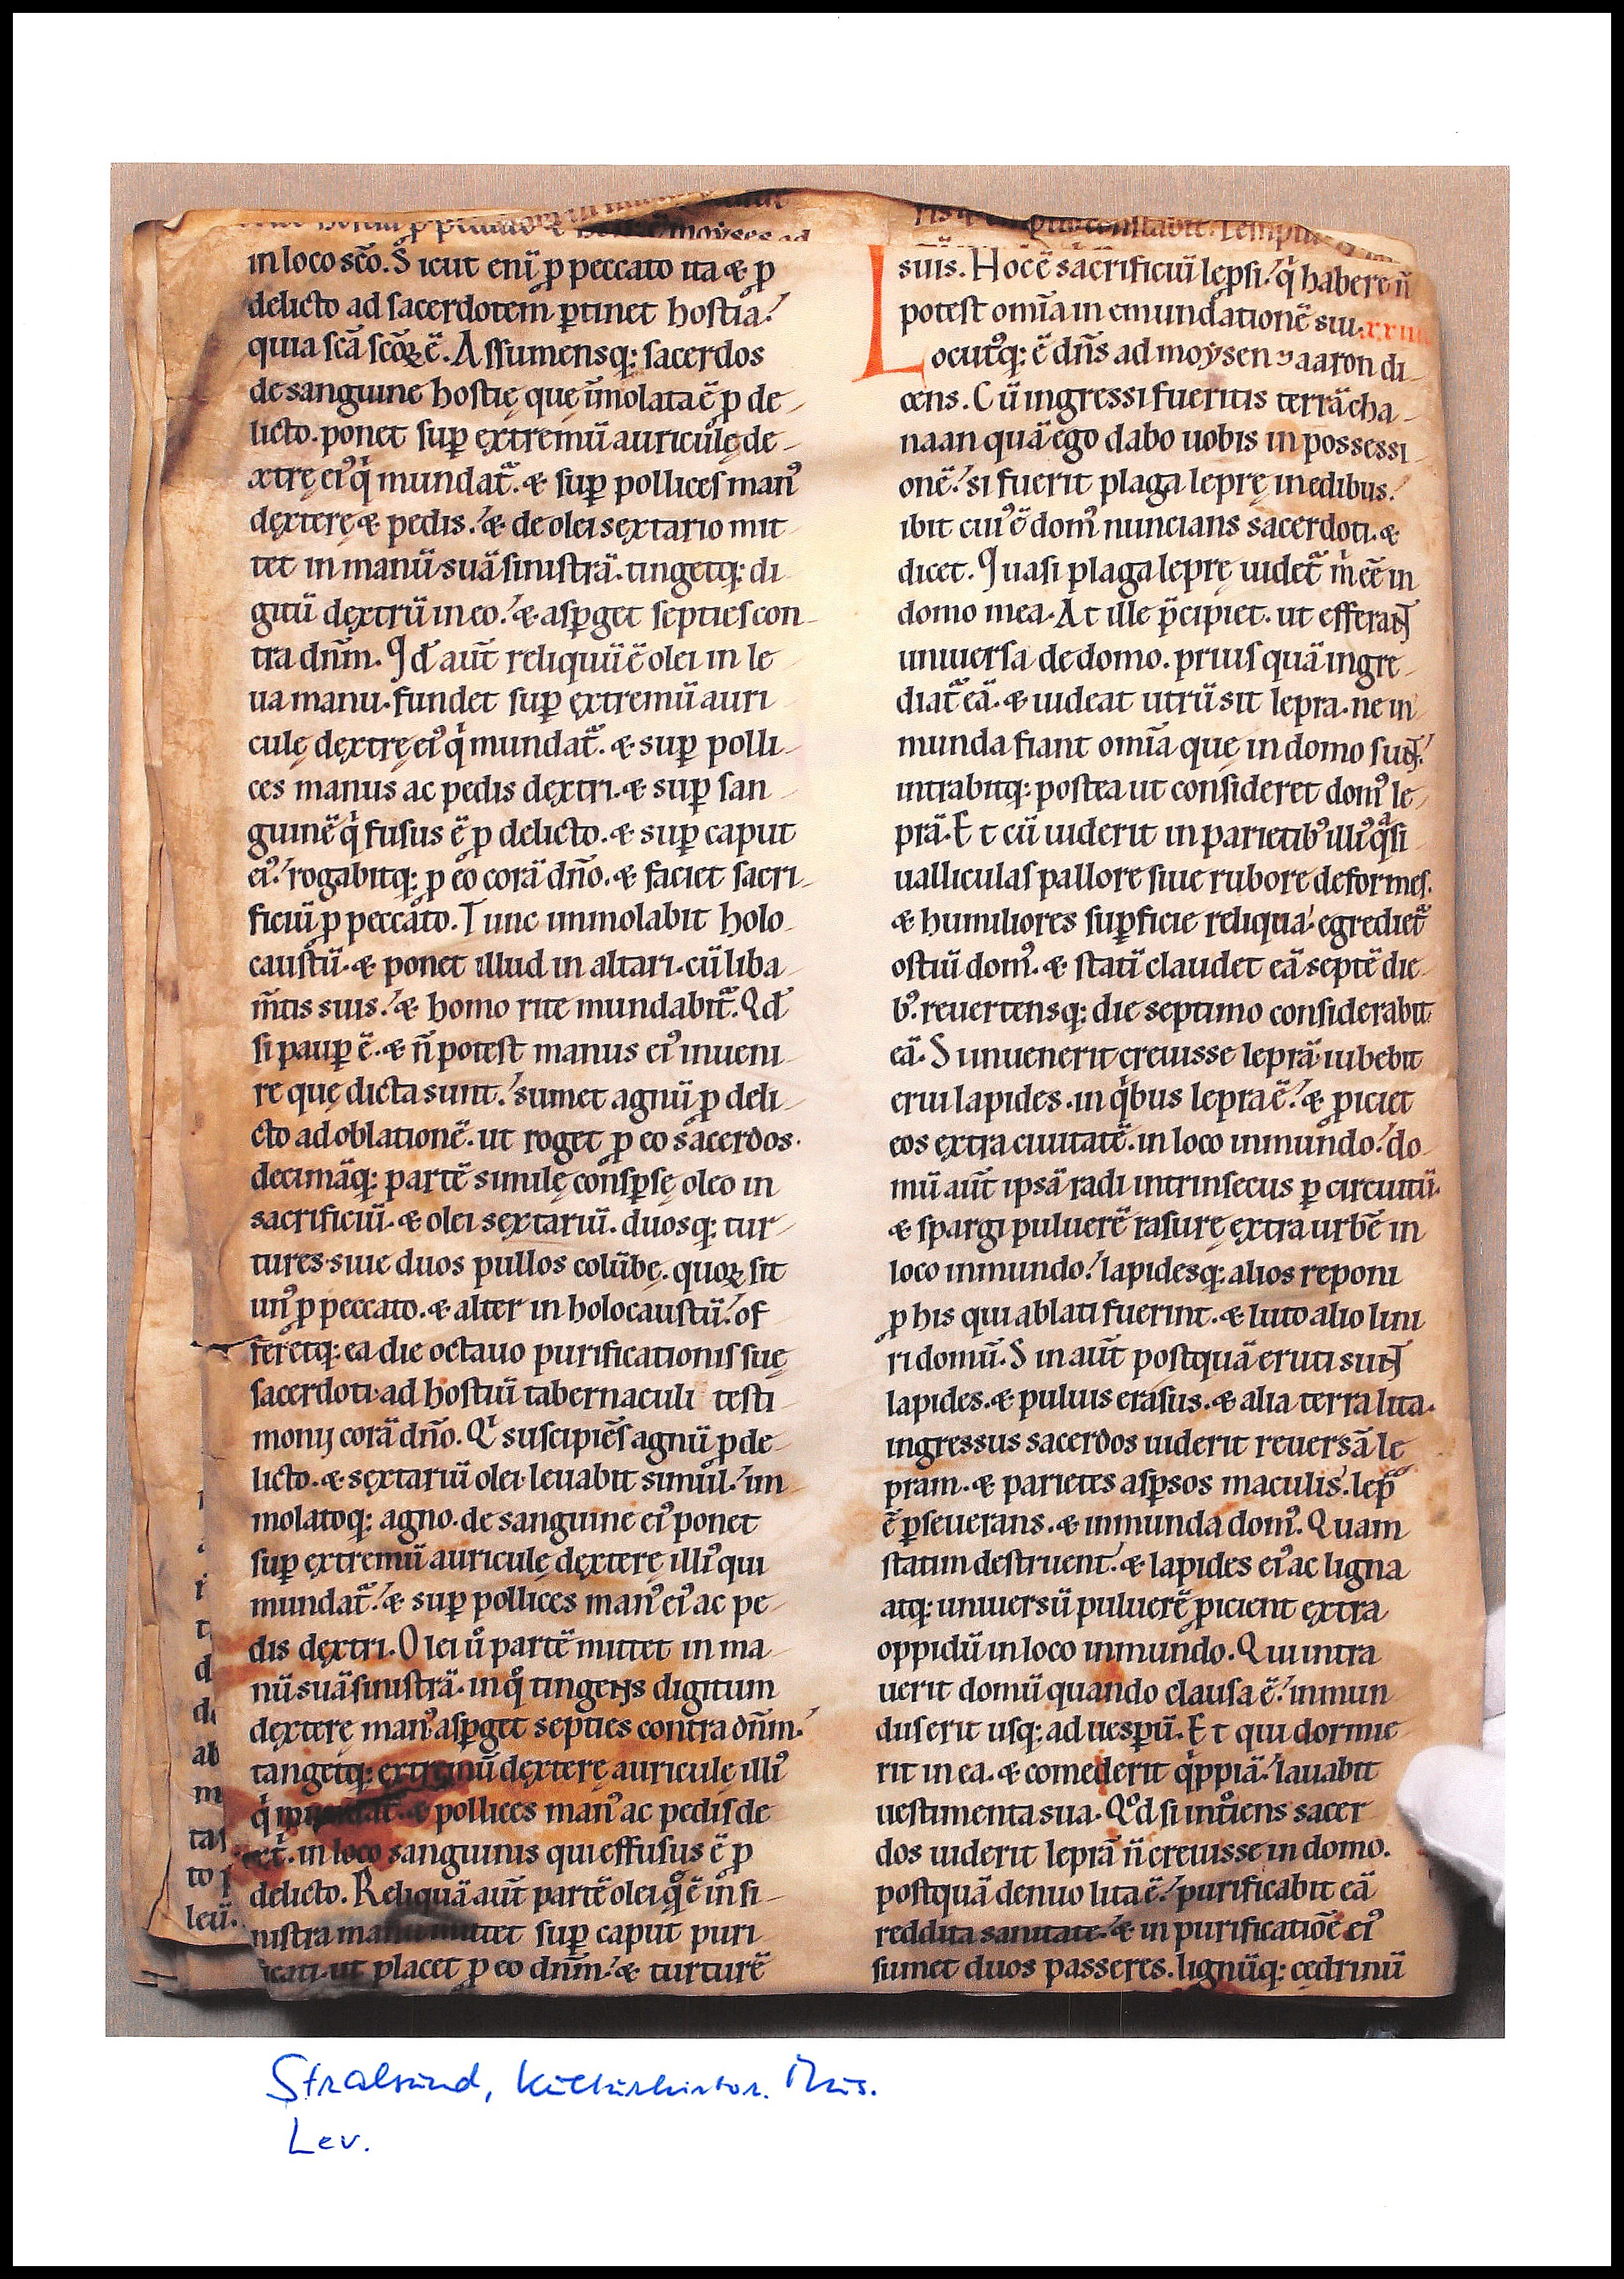 moyses ad
in loco scō. Sicut enī ꝑ peccato ita & ꝑ
delicto ad sacerdotem ꝑtinet hostia:
quia scā scōꝝ ē. Assumensq; sacerdos
de sanguine hostię que īmolata ē ꝑ de-
licto. ponet suꝑ extremū auriculę de-
xtrę eiꝰ qͥ mundat᷑. & suꝑ pollices manꝰ
dęxterę & pedis. & de olei sextario mit
tet in manū suā sinistrā. tingetq; di
gitū dęxtrū in eo. & asꝑget septies con-
tra dn̄m. Qd̄ aut̄ reliquū ē olei in le
ua manu. fundet suꝑ ęxtremū auri
culę dęxtrę eiꝰ qͥ mundat᷑. & suꝑ polli-
ces manus ac pedis dextri. & suꝑ san-
guinē qͥ fusus ē ꝑ delicto. & suꝑ caput
eiꝰ. rogabitq; ꝑ eo corā dn̄o. & faciet sacri-
ficiū ꝑ peccato. Tunc immolabit holo-
caustū. & ponet illud in altari. cū liba
m̄tis suis. & homo rite mundabit᷑. Qd̄
si pauꝑ ē. & n̄ potest manus eiꝰ inueni-
re quę dicta sunt. sumet agnū ꝑ deli-
cto ad oblationē. ut roget ꝑ eo sacerdos.
decimāq; partē similę consꝑsę oleo in
sacrificiū. & olei sextariū. duosq; tur-
tures siue duos pullos colūbę. quoꝝ sit
unꝰ ꝑ peccato. & alter in holocaustū. of
feretq; ea die octauo purificationis suę
sacerdoti. ad hostiū tabernaculi testi
monij corā dn̄o. Qͥ suscipiēs agnū ꝑ de-
licto. & sęxtariū olei. leuabit simul. im
molatoq; agno. de sanguine eiꝰ ponet
suꝑ extremū auriculę dęxterę illiꝰ qui
mundat᷑. & suꝑ pollices manꝰ eiꝰ ac pe-
dis dęxtri. Olei uͦ partē mittet in ma-
nū suā sinistrā. in qͦ tingens digitum
dęxterę manꝰ asꝑget septies contra dn̄m.
tangetq; extremū dęxterę auriculę illiꝰ
qͥ mundat᷑. & pollices manꝰ ac pedis de
in loco sanguinis qui effusus ē ꝑ
delicto. Reliquā aut̄ partē olei qͦ ē in si-
nistra manu mittet suꝑ caput puri
ficati. ut placet ꝑ eo dn̄m. & turturē
suis. Hoc ē sacrificiū lepsi. qͥ habere n̄
potest om̄ia in emundationē sui. xxiiii
Locutꝰq; ē dn̄s ad moysen ⁊ aaron di-
cens. Cū ingressi fueritis terrā cha-
naan quā ego dabo uobis in possessi-
onē. si fuerit plaga leprę in edibus.
ibit cuiꝰ ē domꝰ nuncians sacerdoti. &
dicet. Quasi plaga leprę uidet᷑ m̄ eē in
domo mea. At ille p̄cipiet. ut efferant
uniuersa de domo. prius quā ingre-
diat᷑ eā. & uideat utrū sit lepra. ne in
munda fiant om̄ia quę in domo sunt.
intrabitq; postea ut consideret domꝰ le-
prā. Et cū uiderit in parietibꝰ illiꝰ qͣsi
ualliculas pallore siue rubore deformes.
& humiliores suꝑficie reliqua. egrediet᷑
ostiū domꝰ. & statī claudet eā septē die-
bꝰ. reuertensq; die septimo considerabit
eā. Si inuenerit creuisse leprā. iubebit
erui lapides. in qͥbus lepra ē. & ꝓiciet
eos ęxtra ciuitatē. in loco inmundo. do-
mū aut̄ ipsā radi intrinsecus ꝑ circuitū.
& spargi puluerē rasurę ęxtra urbē in
loco inmundo. lapidesq; alios reponi
ꝑ his qui ablati fuerint. & luto alio lini
ri domū. Sin aut̄ postquā eruti sunt
lapides. & puluis erasus. & alia terra lita.
ingressus sacerdos uiderit reuersā le
pram. & parietes asꝑsos maculis. lepͣ
ē ꝑseuerans. & inmunda domꝰ. Quam
statim destruent. & lapides eiꝰ ac ligna
atq; uniuersū puluerē ꝓicient ęxtra
oppidū in loco inmundo. Qui intra
uerit domū quando clausa ē. inmun
dus erit usq; ad uesꝑū. Et qui dormie
rit in ea. & comederit qͥppiā. lauabit
uestimenta sua. Qͦd si intͦiens sacer
dos uiderit leprā n̄ creuisse in domo.
postquā denuo lita ē. purificabit eā
reddita sanitate. & in purificatiōe eiꝰ
sumet duos passeres. lignūq; cędrinū
ab
m
tas
to
leū.
Stralsund, Kulturhistor. Mus.
Lev.